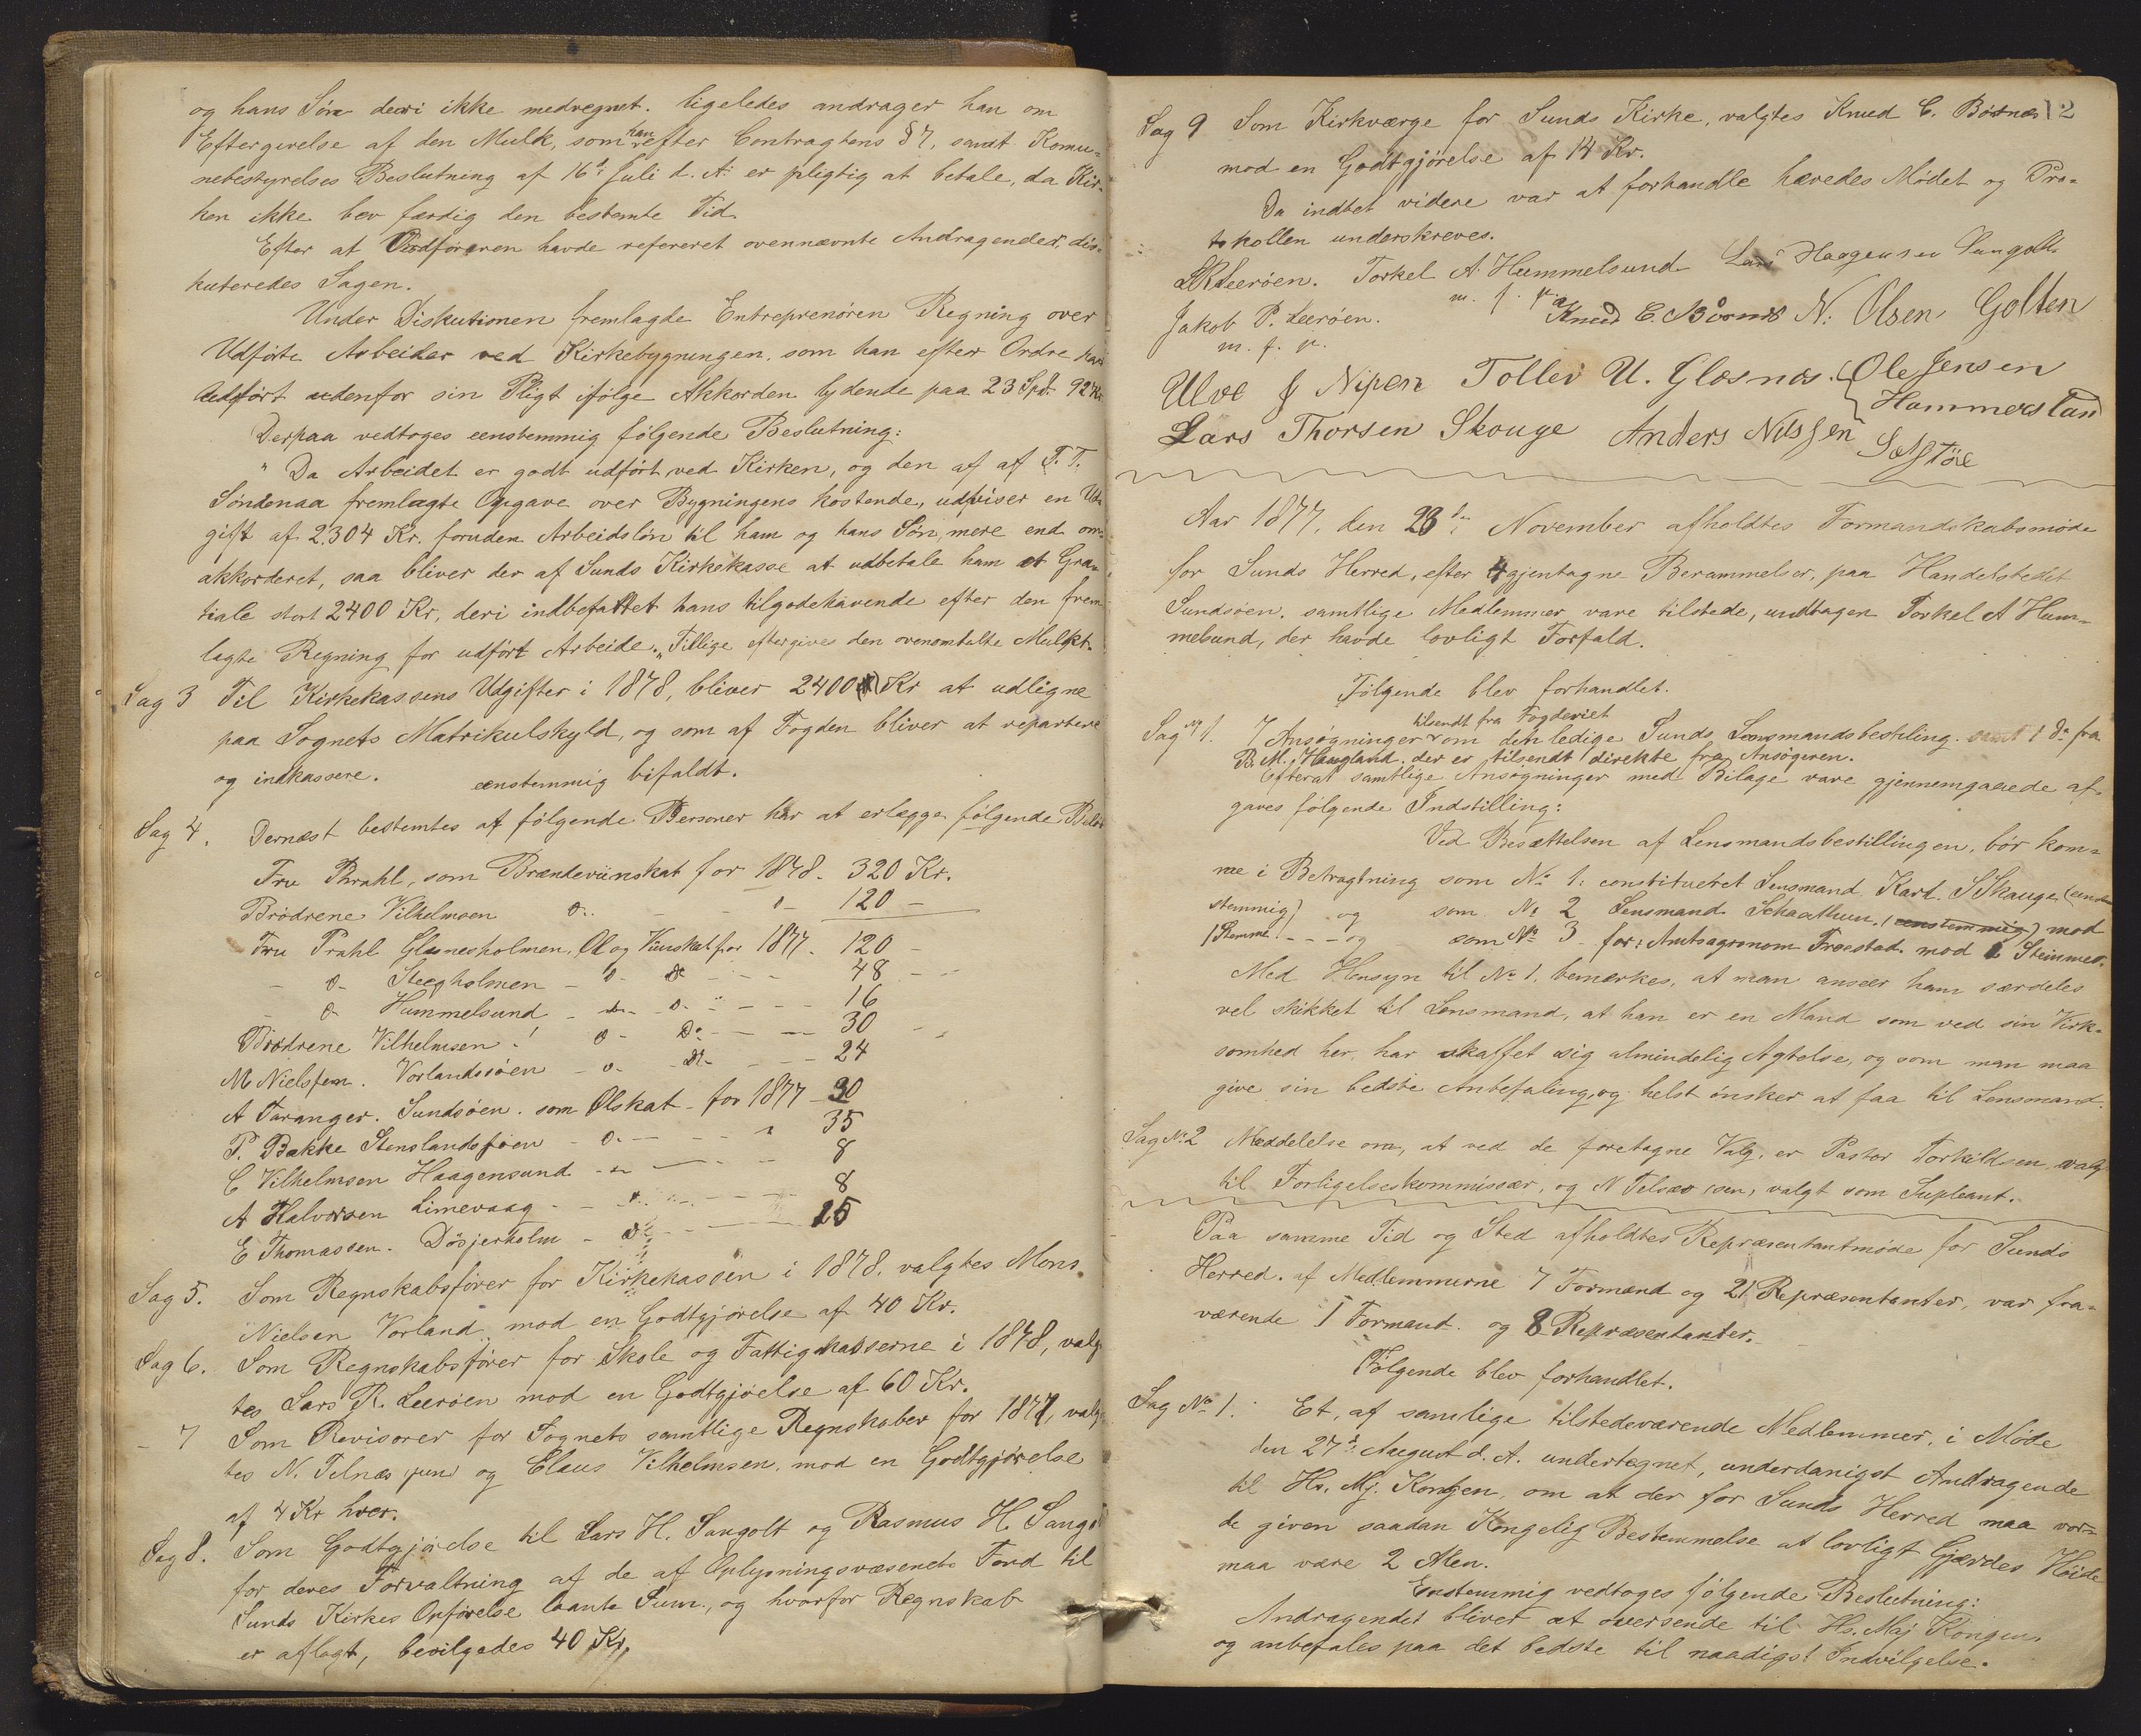 og hans Søn deri ikke medregnet. ligeledes andrager han om
Eftergivelse af den Mulk, som han efter Contragtens § 7, samt Komu-
nebestyrelses Beslutning af 16d Juli d. A. er pligtig at betale, da Kir-
ken ikke bev færdig den bestemte Tid.
Efter at Ordføreren havde refereret ovennævnte Andragender, dis-
kuteredes Sagen.
Under Diskutionen fremlagde Entreprenøren Regning over
Udførte Arbeider ved Kirkebygningen, som han efter Ordre har
Udført udenfor sin Pligt ifølge Akkorden lydende paa 23 Spd. 92
Derpaa vedtoges eenstemmig følgende Beslutning:
"Da Arbeidet er godt udført ved Kirken, og den af af T. T.
Søndenaa fremlagte Opgave over Bygningens kostende, udviser en Ud-
gift af 2304 Kr. foruden Arbeidsløn til ham og hans Søn, mere end om-
akkorderet, saa bliver der af Sunds Kirkekasse at udbetale ham et Gra-
tiale stort 2400 Kr, deri indbefattet hans tilgodehavende efter den frem-
lagte Regning for udført Arbeide. " Tillige eftergives den ovenomtalte Mulkt.
Sag 3 Til Kirkekassens Udgifter i 1878, bliver 2400 Kr at udligne
paa Sognets Matrikulskyld, og som af Fogden bliver at repartere
og indkassere. eenstemmig bifaldt.
Sag 4. Dernæst bestemtes at følgende Personer har at erlægge følgende Beløb
Fru Prahl, som Brændeviinskat for 1878. 320 Kr.
Brødrene Vilhelmsen do - - - 120 -
Fru Prahl Glesnesholmen, Øl og Viinskat for 1877. 120 -
- do - Steegholmen - do - do - - - 48 - -
- do - Hummelsund - do - do - - - 16
Brødrene Vilhelmsen - do - do - - 30 -
M Nielssen. Vorlandsøen - do - do - - - 24
A Taranger. Sundsøen. som Ølskat - for 1877 - 30
P. Bakke Stenslandsøen - do - - - " 35
C Vilhelmsen Haagensund - do - - - 8
A Halvorsen Limevaag - - do - - - 8
E Thomassen. Døsjerholm - do - - - 25
Sag 5. Som Regnskabsfører for Kirkekassen i 1878, valgtes Mons
Nielsen Vorland mod en Godtgjørelse af 40 Kr.
Sag 6. Som Regnskabsfører for Skole og Fattigkasserne i 1878, valg-
tes Lars R. Leerøen mod en Godtgjøelse af 60 Kr.
- 7 Som Revisorer for Sognets samtlige Regnskaber for 1877, valg-
tes N. Telnæs jun og Claus Vilhelmsen, mod en Godtgjørelse
af 4 Kr hver.
Sag 8. Som Godtgjørelse til Lars H. Sangolt og Rasmus H. Sangolt
for deres Forvaltning af de af Oplysningsvæsenets Fond til
Sunds Kirkes Opførelse laante Sum, og hvorfor Regnskab
er aflagt, bevilgedes 40 Kr.
12
Sag 9 Som Kirkværge for Sunds Kirke, valgtes Knud C. Børnæs
mod en Godtgjørelse af 14 Kr.
Da indtet videre var at forhandle hævedes Mødet og Pro-
tokollen underskreves.
LRLeerøen. Torkel A. Hummelsund Lars Haagensen Sangolt
m. f. p.
Jakob P. Leerøen. Knud C. Børnes N. Olsen Golten
m. f. p.
Ulve J Nipen Tollev U. Glesnæs. Ole Jensen
Hammersland
Lars Thorsen Skouge Anders Nilssen
Sætstøe
Aar 1877, den 23de November afholdtes Formandskabsmøde
for Sunds Herred, efter 4 gjentagne Berammelser, paa Handelstedet
Sundsøen. samtlige Medlemmer vare tilstede, undtagen Torkel A Hum-
melsund, der havde lovligt Forfald.
Følgende blev forhandlet.
tilsendt fra Fogderiet
Sag No 1. 7 Ansøgninger om den ledige Sunds Lensmandsbestiling. samt 1 do fra
B. M. Haugland, der er tilsendt direkte fra Ansøgeren.
Efterat samtlige Ansøgninger med Bilage vare gjennemgaaede af-
gaves følgende Indstilling:
Ved Besættelsen af Lensmandsbestillingen, bør kom-
me i Betragtning som No 1: constitueret Lensmand Karl. S Skauge (een-
stemmig) og som No 2 Lensmand Schaathun, (eenstemmig) mod
1 Stemme - - - og som No 3 for: Amtsagronom Troestad mod Stemmer.
Med Hensyn til No 1. bemærkes, at man anseer ham særdeles
vel skikket til Lensmand, at han er en Mand som ved sin Virk-
somhed her, har skaffet sig almindelig Agtelse, og som man maa
give sin bedste Anbefaling, og helst ønsker at faa til Lensmand.
Sag No 2 Meddelelse om, at ved de foretagne Valg, er Pastor Torkildsen valg
til Forligelseskommissær, og N Telnæs sen, valgt som Supleant.
Paa samme Tid og Sted afholdtes Repræsentantmøde for Sunds
Herred. af Medlemmerne 7 Formænd og 21 Repræsentanter, var fra-
værende 1 Formand. og 8 Repræsentanter.
Følgende blev forhandlet.
Sag No 1. Et, af samlige tilstedeværende Medlemmer, i Møde
den 27de August d. A. undertegnet, underdanigst Andragende
til Hs. Mj. Kongen, om at der for Sunds Herred maa vor-
de given saadan Kongelig Bestemmelse at lovligt Gjærdes Høide
maa være 2 Alen.
Enstemmig vedtoges følgende Beslutning:
Andragendet blivet at oversende til Hs. Maj Kongen,
og anbefales paa det bedste til naadigst Indvilgelse.